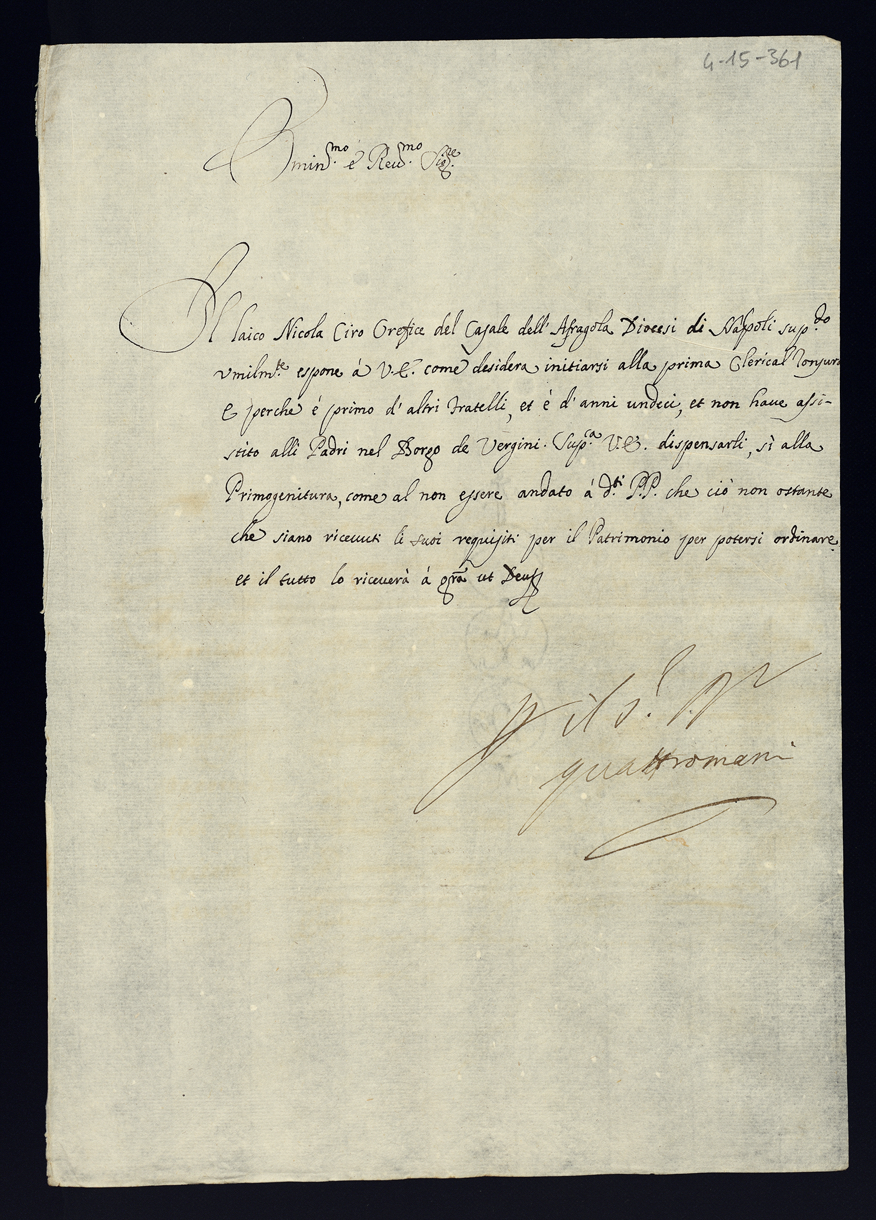 4-15-361
Emin.mo é Reu.mo Sig.re
Il laico Nicola Ciro Orefice del Casale dell'Afragola Diocesi di Napoli sup.do
vmilm.te espone á V.E. come desidera initiarsi alla prima Clerical Tonsura
E perche é primo d'altri fratelli, et é d'anni undeci, et non haue assi-
stito alli Padri nel Borgo de Vergini. Sup.ca V.E. dispensarli, sì alla
Primogenitura, come al non essere andato á d.ti P.P. che ciò non ostante
che siano riceuuti li suoi requisiti per il Patrimonio per potersi ordinare
et il tutto lo riceuerà á gra ut Deus
il s.r
quattromani